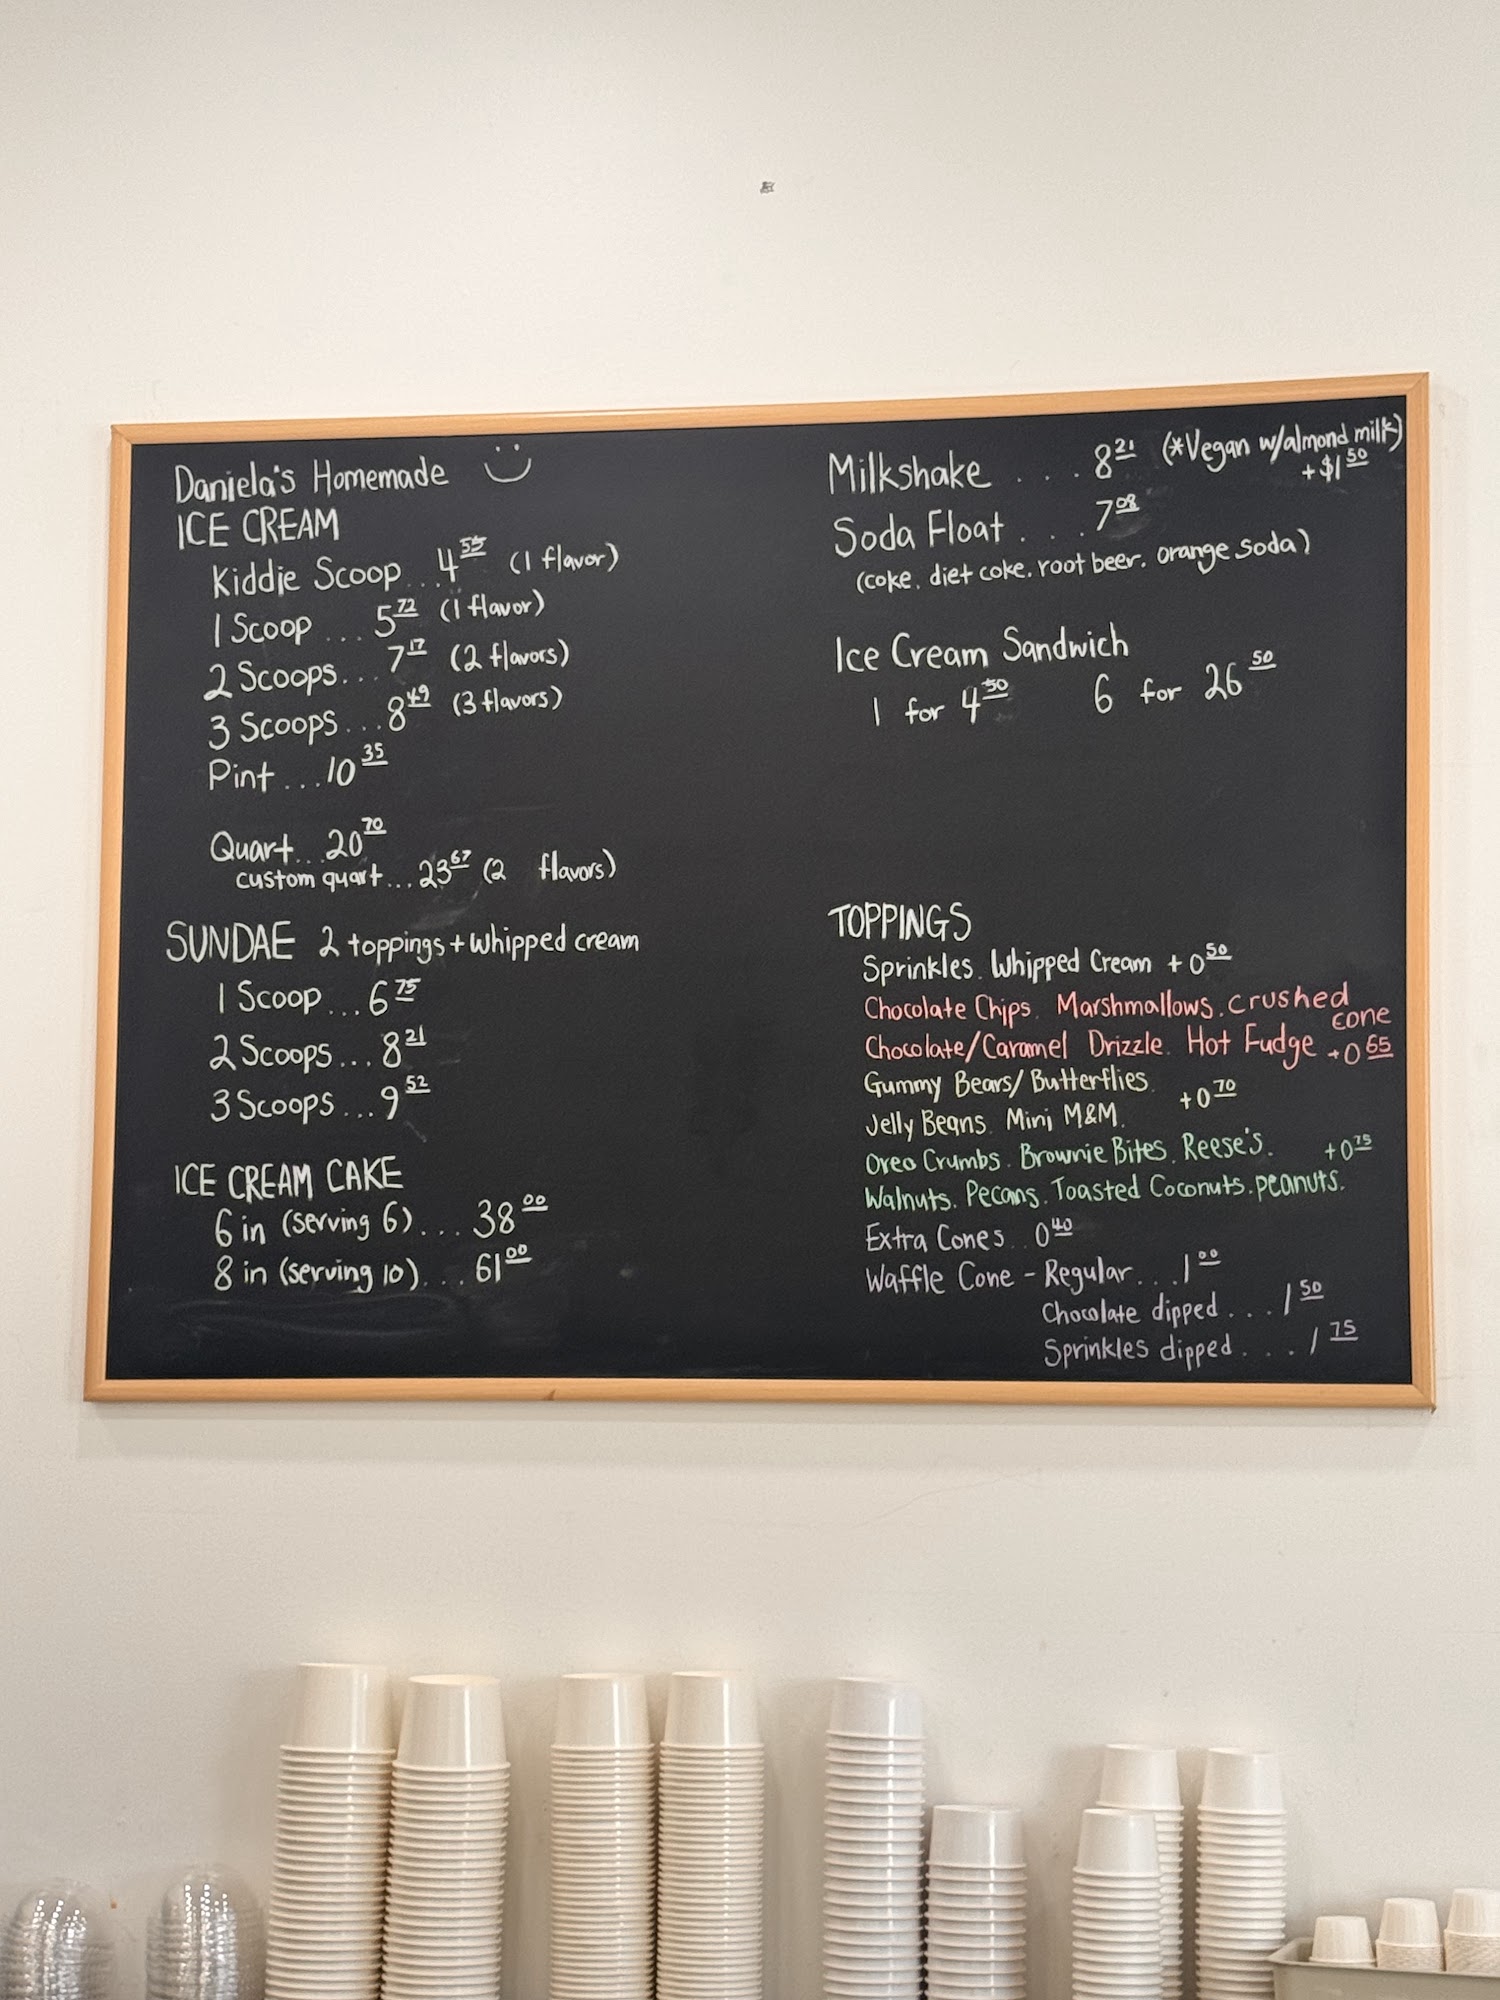 Daniela's Homemade
ICE CREAM
Kiddie Scoop...4 55 (1 flavor)
1 Scoop ... 5 72 (1 flavor)
2 Scoops... 7 17 (2 flavors)
3 Scoops...8 49 (3 flavors)
Pint ...10 35
Quart...20 70
custom quart...23 67 (2 flavors)
SUNDAE 2 toppings + whipped cream
1 Scoop ...6 75
2 Scoops...8 21
3 Scoops...9 52
ICE CREAM CAKE
6 in (serving 6)... 38 00
8 in (serving 10)... 61 00
Milkshake ....8 21 (*Vegan w/almond milk)
+$1 50
Soda Float ... 7 08
(coke. diet coke. root beer. orange soda)
Ice Cream Sandwich
1 for 4 50 6 for 26 50
TOPPINGS
Sprinkles. Whipped Cream +0 50
Chocolate Chips. Marshmallows. crushed
cone
Chocolate/Caramel Drizzle. Hot Fudge +0 65
Gummy Bears/Butterflies.
Jelly Beans. Mini M&M. +0 70
Oreo Crumbs. Brownie Bites. Reese's. +0 75
Walnuts. Pecans. Toasted Coconuts. peanuts.
Extra Cones.. 0 40
Waffle Cone - Regular...1 00
Chocolate dipped ...1 50
Sprinkles dipped ....1 75